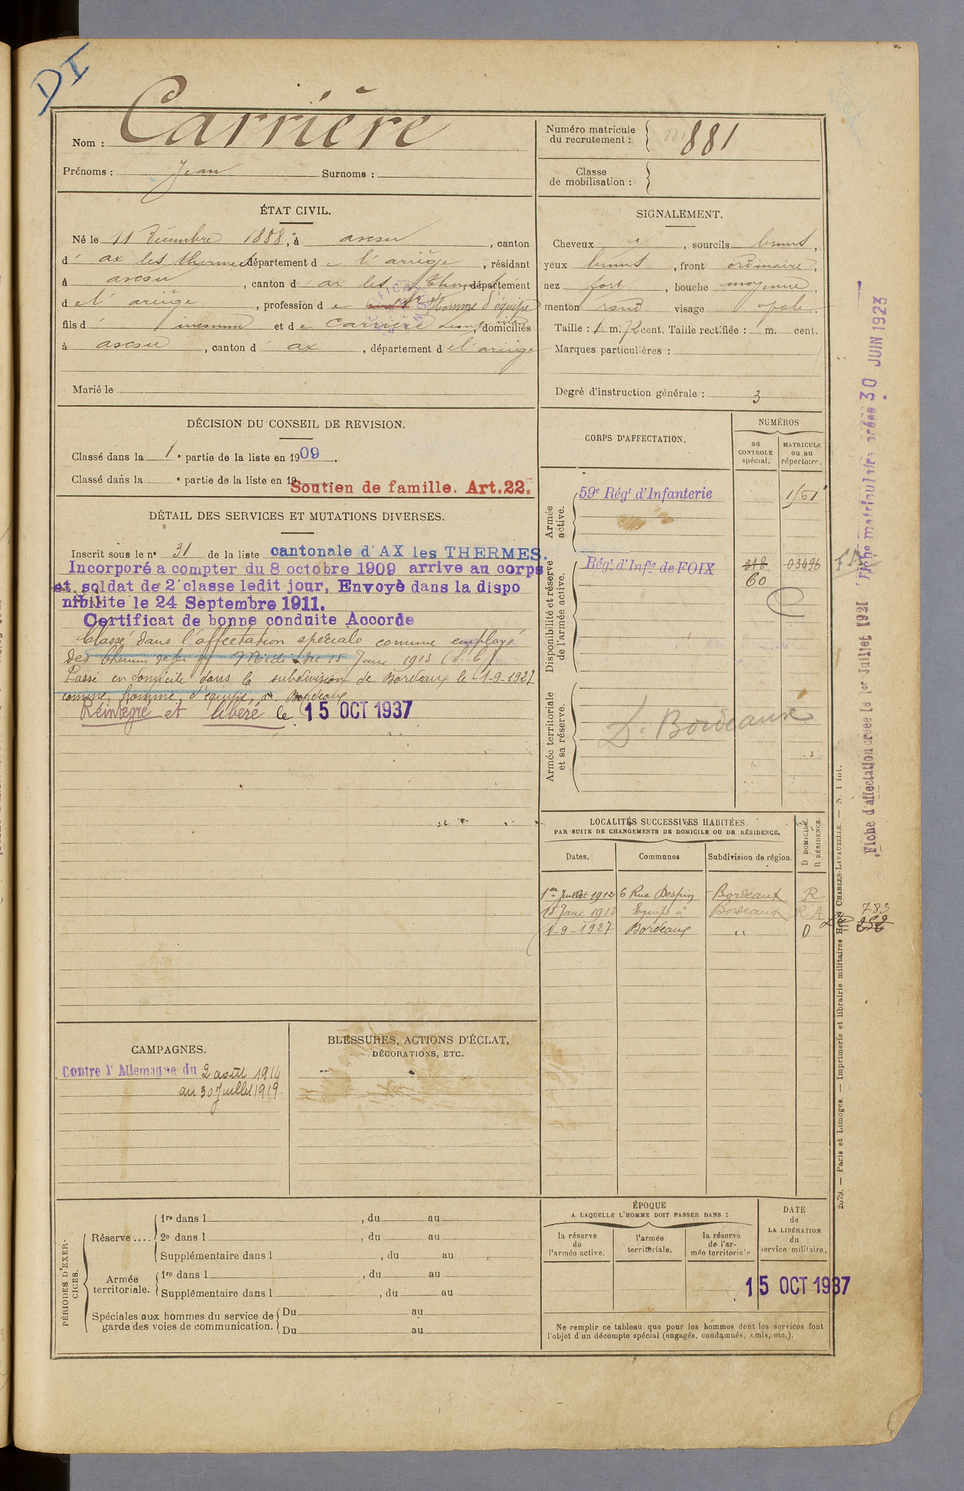 DI
Nom : Carrière
Prénoms : Jean Surnoms :
Numéro matricule du recrutement : 881
Classe de mobilisation :
ÉTAT CIVIL.
Né le 11 Décembre 1888, à ascou, canton
d' ax les thermes département de l'ariège, résidant
à ascou, canton d' ax les Thermes, département
de l'ariège, profession de Homme d'équipe
fils d' inconnu et de Carrière, domiciliés
à ascou, canton d' ax, département de l'ariège
Marié le
SIGNALEMENT.
Cheveux , sourcils bruns,
yeux bruns, front ordinaire,
nez fort, bouche moyenne,
menton rond visage ovale.
Taille : 1 m. 72 cent. Taille rectifiée : m. cent.
Marques particulières :
Degré d'instruction générale : 3
DÉCISION DU CONSEIL DE REVISION.
Classé dans la 1e partie de la liste en 1909.
Classé dans la e partie de la liste en 19
Soutien de famille. Art.22.
DÉTAIL DES SERVICES ET MUTATIONS DIVERSES.
Inscrit sous le n° 31 de la liste cantonale d'AX les THERMES.
Incorporé a compter du 8 octobre 1909 arrive au corps
et soldat de 2e classe ledit jour, Envoyé dans la dispo
nibilite le 24 Septembre 1911.
Certificat de bonne conduite Accorde
Classé dans l'affectation spéciale comme employé
des Chemins de fer Midi du 15 Janv 1913
Passé en domicile dans la subdivision de Bordeaux le 1-9-1927
comme homme d'équipe à Bordeaux
Réintégré et libéré le 15 OCT 1937
CORPS D'AFFECTATION.
NUMÉROS
au CONTROLE spécial.
MATRICULE ou au répertoire.
Armée active.
59e Régt d'Infanterie
Disponibilité et réserve de l'armée active.
Régt d'Infie de FOIX 318 03496
60
Armée territoriale et sa réserve.
D. Bordeaux
LOCALITÉS SUCCESSIVES HABITÉES
PAR SUITE DE CHANGEMENTS DE DOMICILE OU DE RÉSIDENCE.
D DOMICILE. R RÉSIDENCE.
Dates. Communes Subdivision de région.
1er Juillet 1912 6 Rue Bordeaux R
15 Janv 1913 Bordeaux R
1-9-1927 Bordeaux " D
783
CAMPAGNES.
Contre l'Allemagne du 2 août 1914
au 30 Juillet 1919.
BLESSURES, ACTIONS D'ÉCLAT,
DÉCORATIONS, ETC.
PÉRIODES D'EXERCICES.
Réserve .... 1re dans l , du au
2e dans l , du au
Supplémentaire dans l , du au
Armée territoriale. 1re dans l , du au
Supplémentaire dans l , du au
Spéciales aux hommes du service de garde des voies de communication. Du au
Du au
ÉPOQUE
A LAQUELLE L'HOMME DOIT PASSER DANS :
la réserve de l'armée active.
l'armée territoriale.
la réserve de l'armée territoriale
DATE de LA LIBÉRATION du service militaire.
15 OCT 1937
Ne remplir ce tableau que pour les hommes dont les services font
l'objet d'un décompte spécial (engagés, condamnés, omis, etc.).
2079. — Paris et Limoges. — Imprimerie et librairie militaires Henri CHARLES-LAVAUZELLE. — N. 1 int.
Fiche d'affectation créée le 1er Juillet 1921
Fiche matriculaire créée 30 JUIN 1923